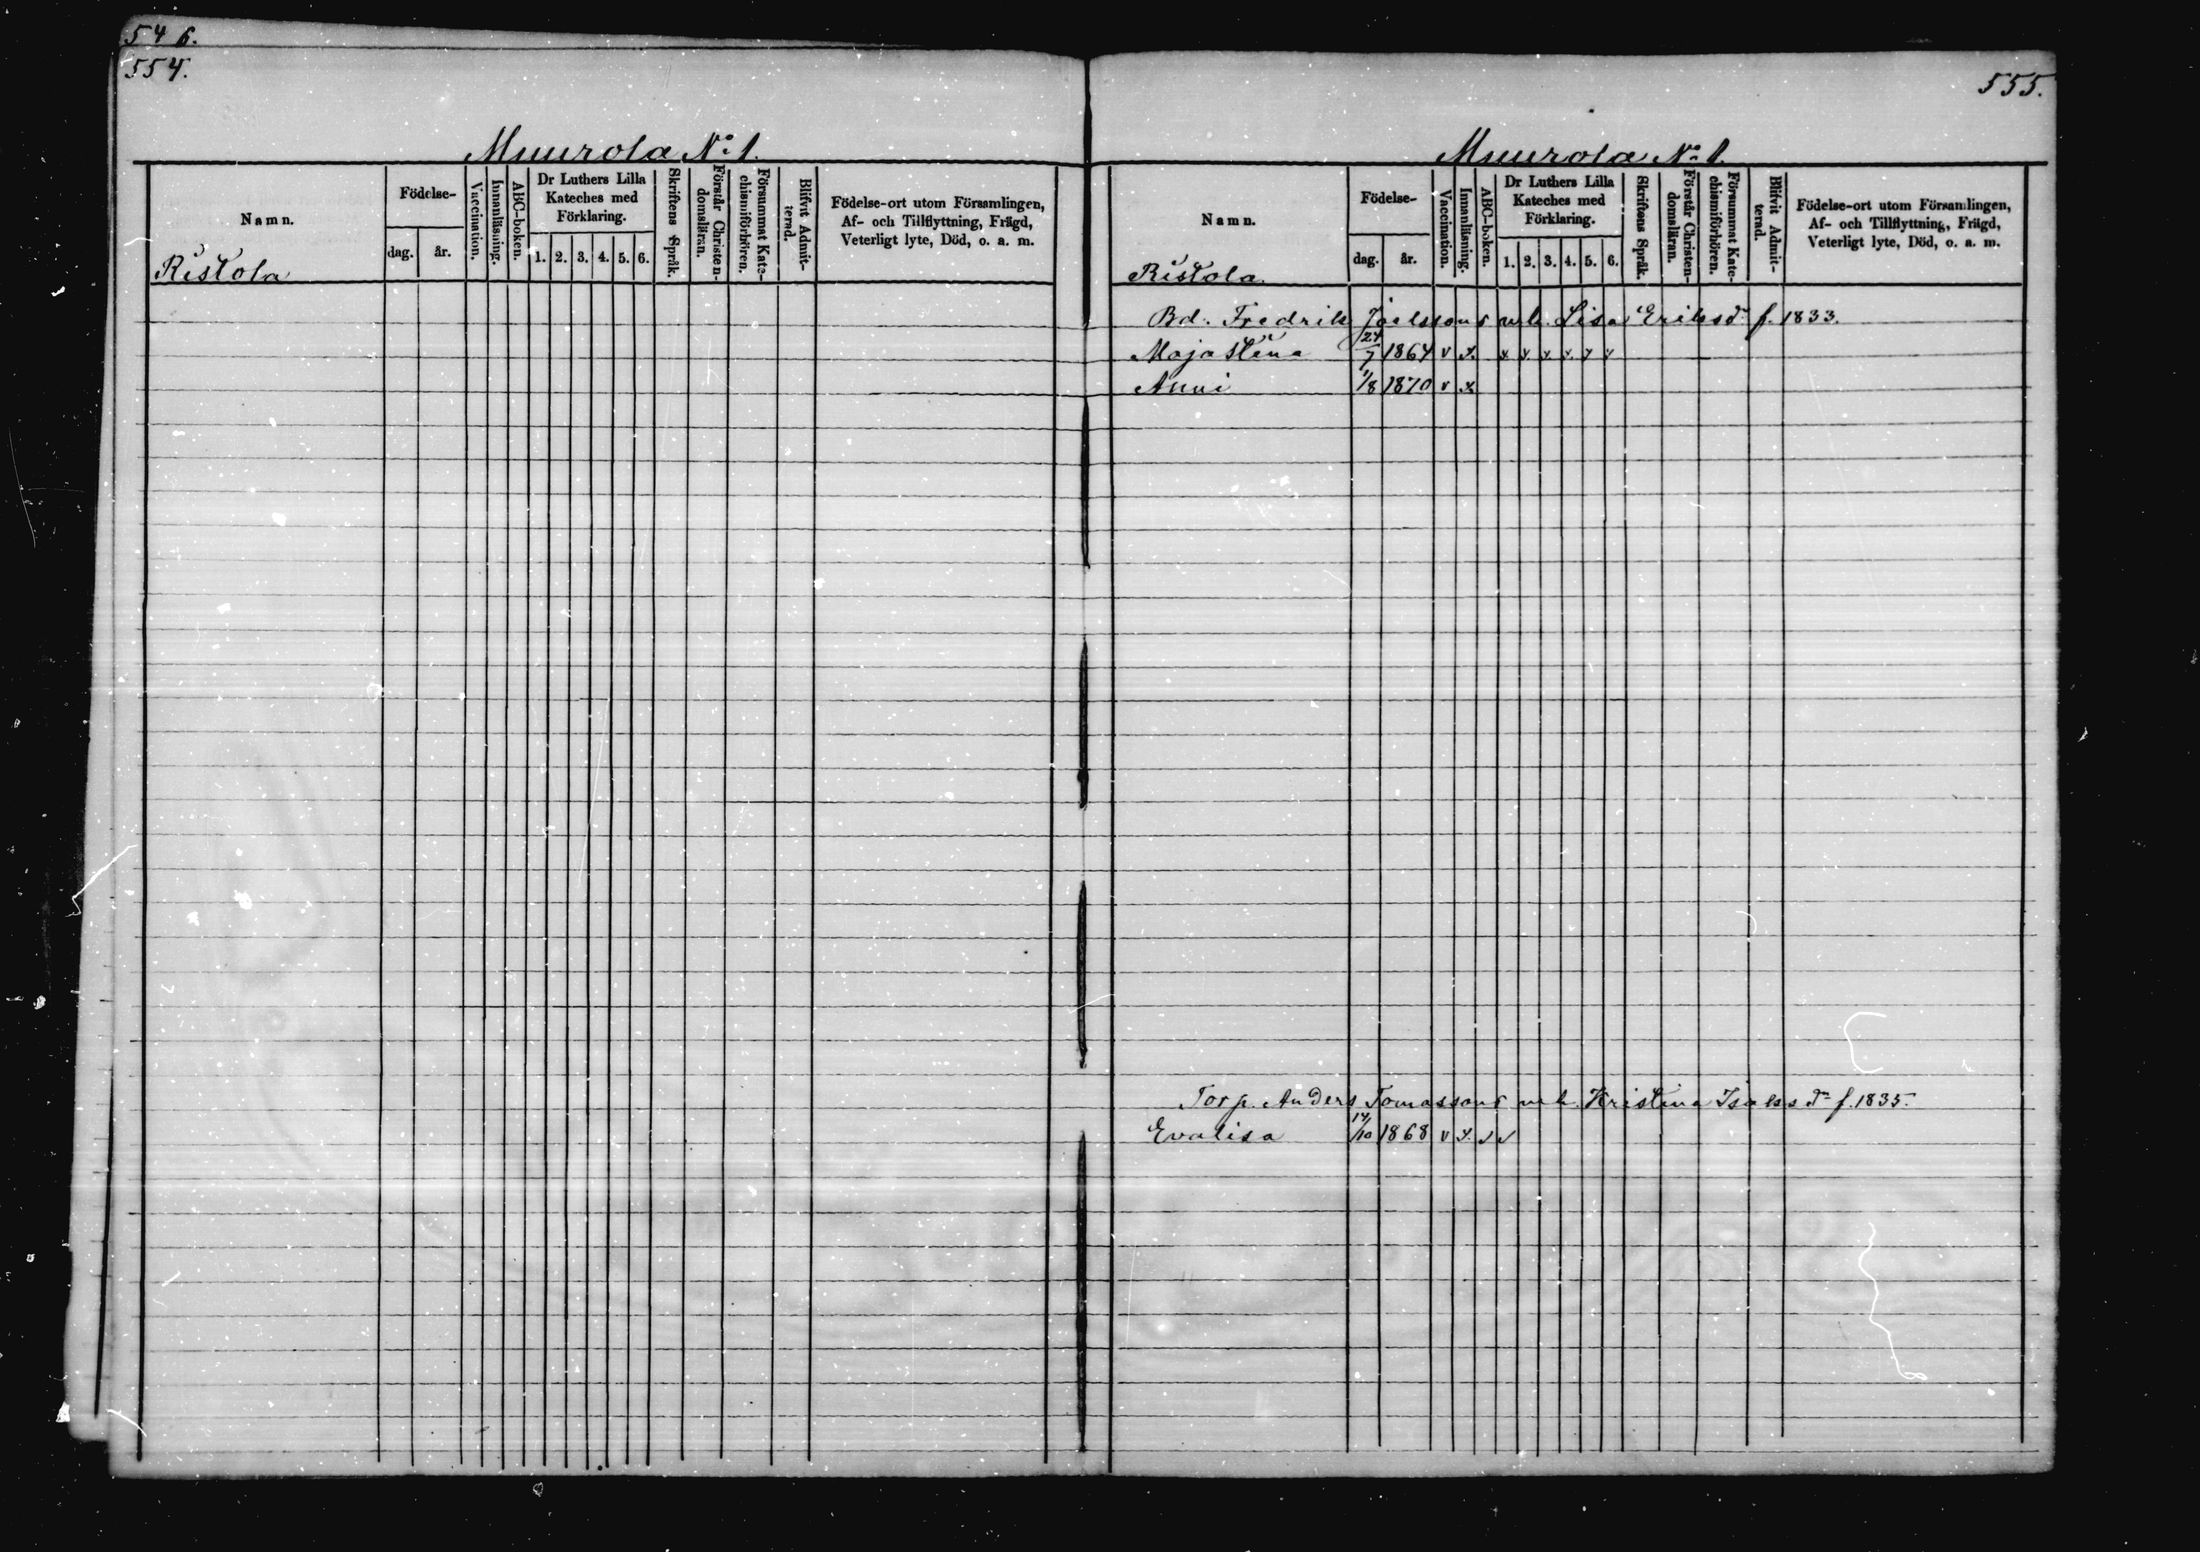 546.
554.
Muurola No 1.
Namn.
Födelse-
dag.
år.
Vaccination.
Innanläsning.
ABC-boken.
Dr Luthers Lilla
Kateches med
Förklaring.
1. 2. 3. 4. 5. 6.
Skriftens Språk.
Förstår Christen-
domsläran.
Försummat Kate-
chismiförhören.
Blifvit Admit-
terad.
Födelse-ort utom Församlingen,
Af- och Tillflyttning, Frägd,
Veterligt lyte, Död, o. a. m.
Ristola
555.
Muurola No 1.
Namn.
Födelse-
dag.
år.
Vaccination.
Innanläsning.
ABC-boken.
Dr Luthers Lilla
Kateches med
Förklaring.
1. 2. 3. 4. 5. 6.
Skriftens Språk.
Förstår Christen-
domsläran.
Försummat Kate-
chismiförhören.
Blifvit Admit-
terad.
Födelse-ort utom Församlingen,
Af- och Tillflyttning, Frägd,
Veterligt lyte, Död, o. a. m.
Ristola.
Bd. Fredrik Joelssons u.h. Lisa Eriksdr f. 1833.
Maja Stina 24/7 1864 v x. x. x. x. x. x x
Anni 1/8 1870 v x.
Torp. Anders Tomassons u.h. Kristina Isaksdr f. 1835.
Evalisa 14/10 1868 v x. v v